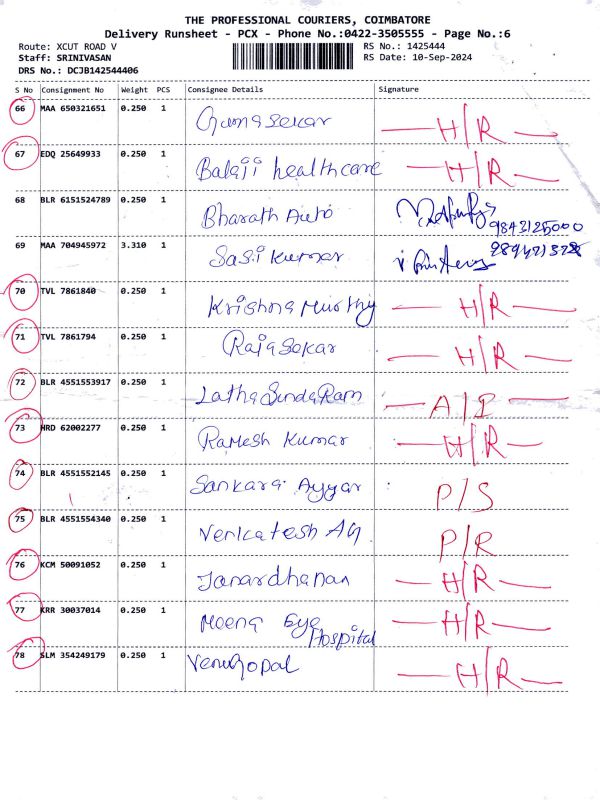 THE PROFESSIONAL COURIERS, COIMBATORE
Delivery Runsheet - PCX - Phone No.:0422-3505555 - Page No.:6
Route: XCUT ROAD V RS No.: 1425444
Staff: SRINIVASAN RS Date: 10-Sep-2024
DRS No.: DCJB142544406
S No Consignment No Weight PCS Consignee Details Signature
66 MAA 650321651 0.250 1 Gunasekar H/R
67 EDQ 25649933 0.250 1 Balaji healthcare H/R
68 BLR 6151524789 0.250 1 Bharath Auto 9843125000
69 MAA 704945972 3.310 1 Sasi kumar
70 TVL 7861840 0.250 1 Krishna Murthy H/R
71 TVL 7861794 0.250 1 Rajasekar H/R
72 BLR 4551553917 0.250 1 Latha SundaRam A/I
73 HRD 62002277 0.250 1 Ramesh Kumar H/R
74 BLR 4551552145 0.250 1 Sankara Ayyar P/S
75 BLR 4551554340 0.250 1 Venkatesh AG P/R
76 KCM 50091052 0.250 1 Janardhanan H/R
77 KRR 30037014 0.250 1 Meena Eye Hospital H/R
78 SLM 354249179 0.250 1 Venugopal H/R